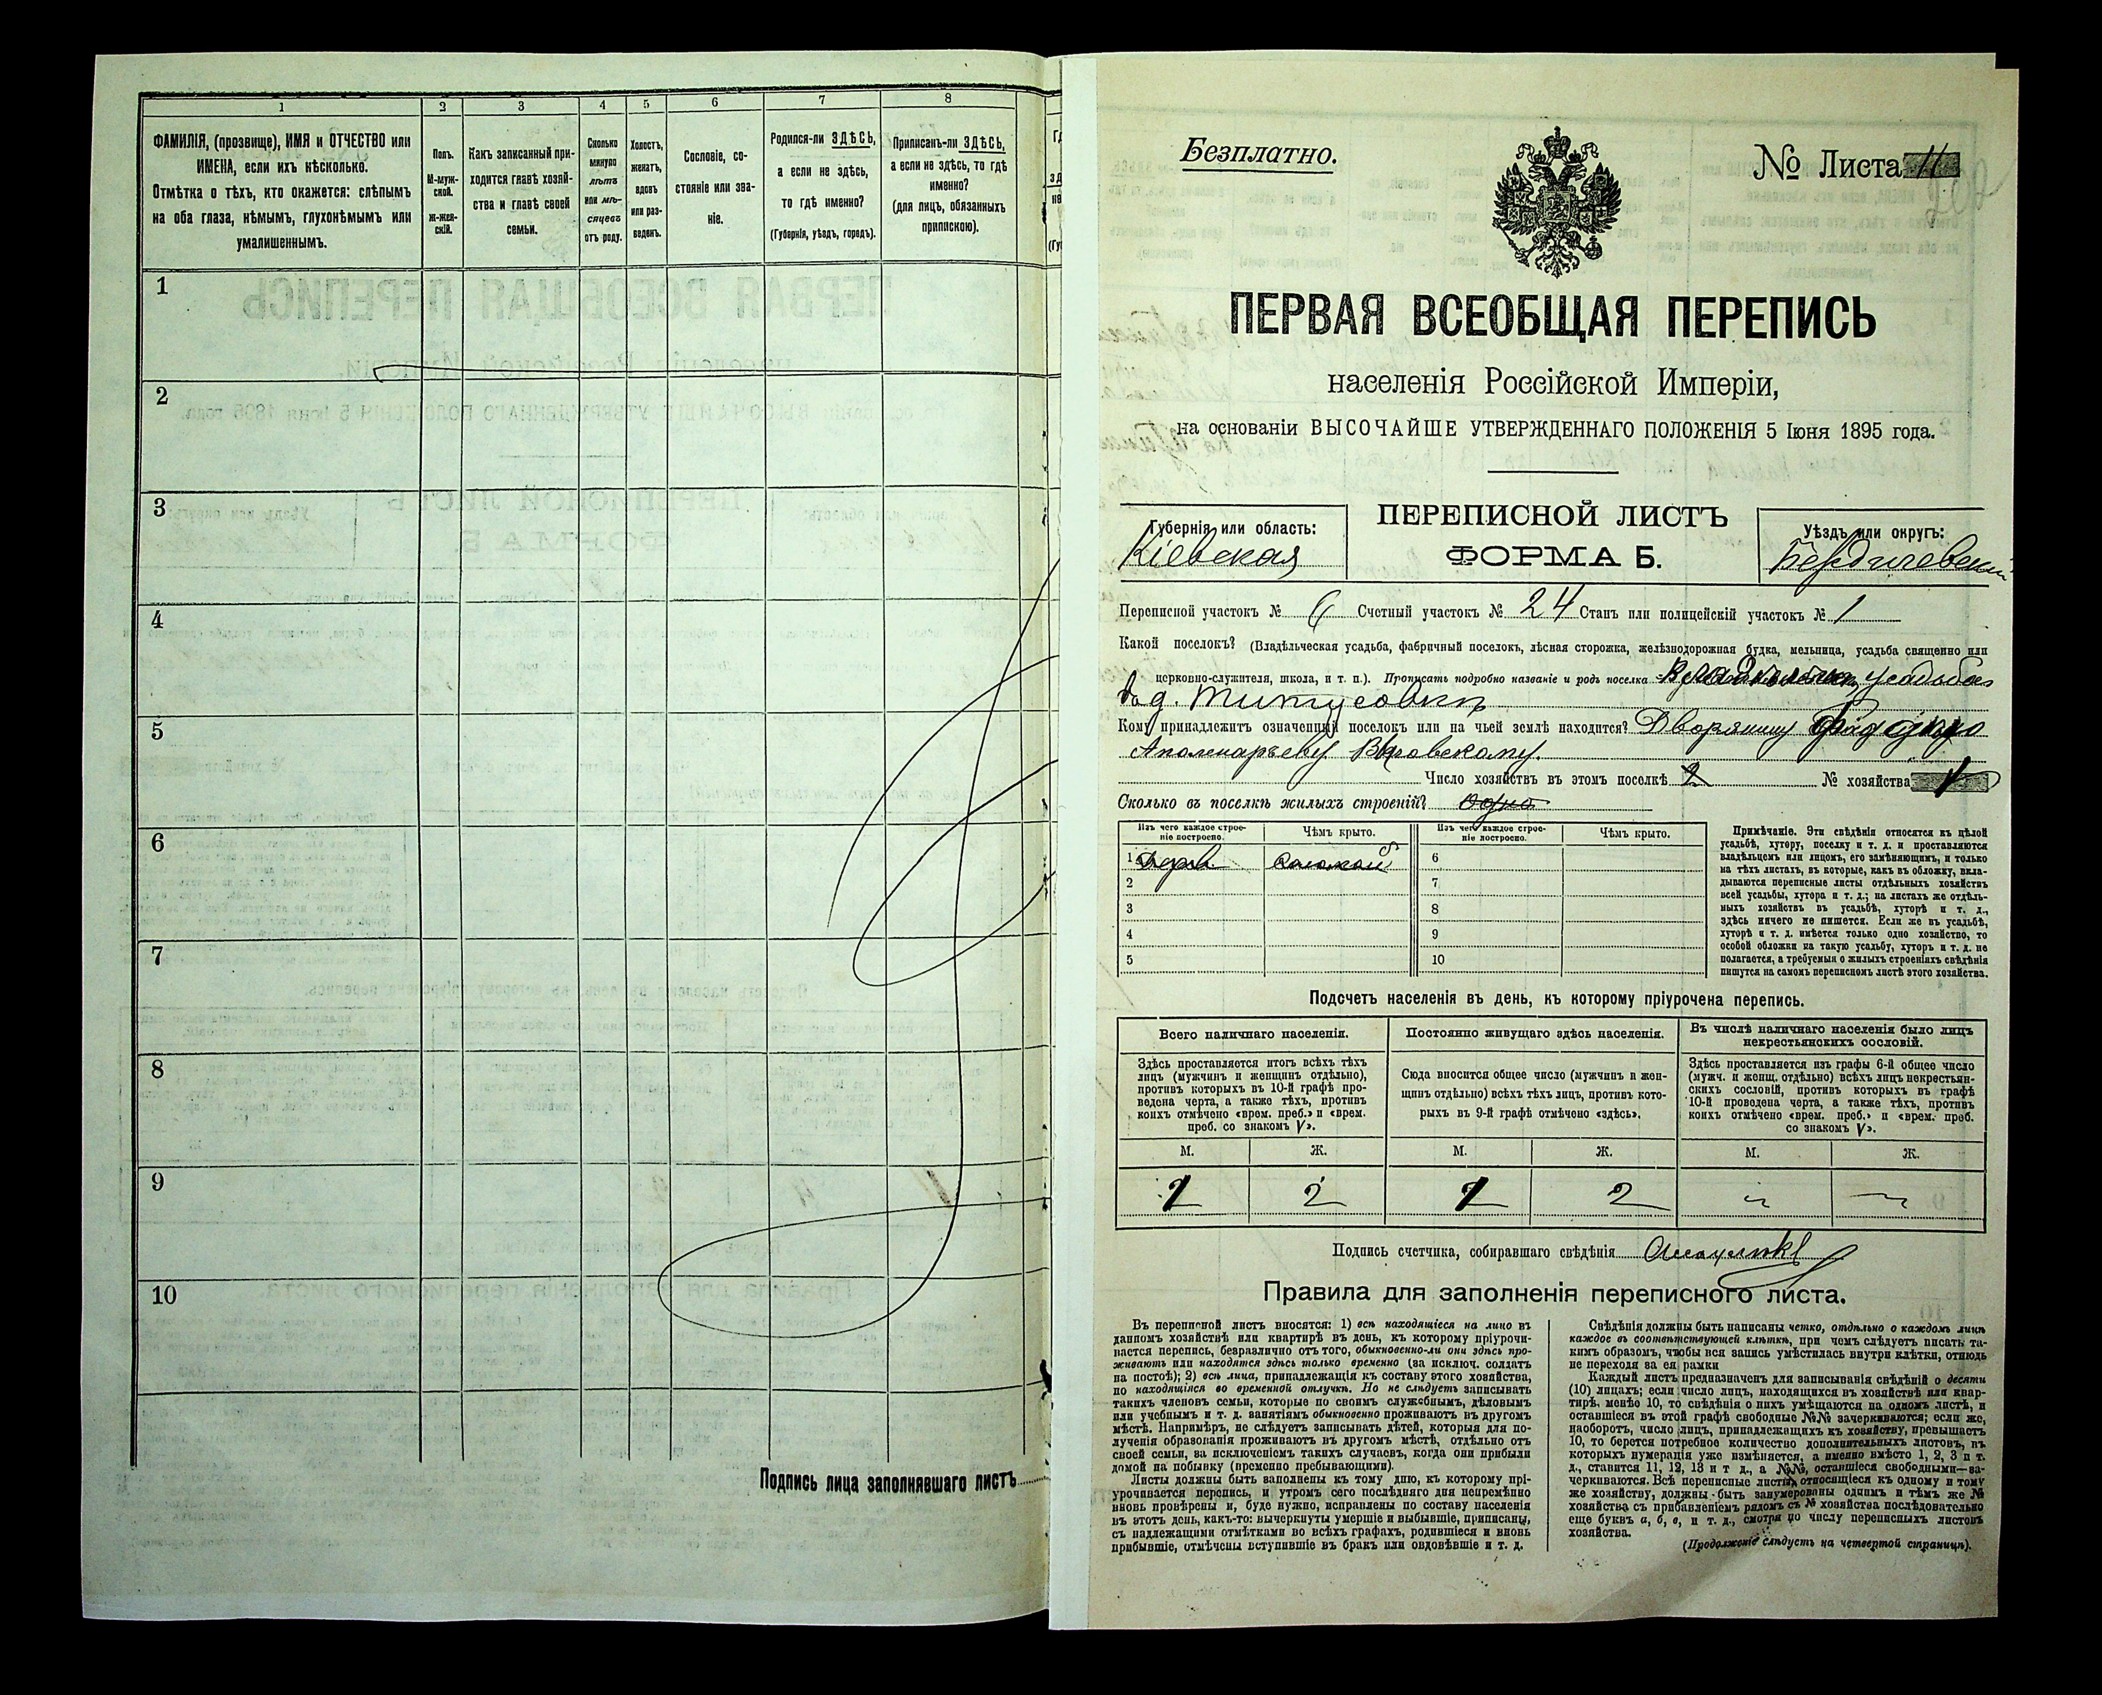 1
2
3
4
5
6
7
8
ФАМИЛІЯ, (прозвище), ИМЯ и ОТЧЕСТВО или
ИМЕНА, если ихъ нѣсколько.
Отмѣтка о тѣхъ, кто окажется: слѣпымъ
на оба глаза, нѣмымъ, глухонѣмымъ или
умалишеннымъ.
Полъ.
М-муж-
ской.
Ж-жен-
скій.
Какъ записанный при-
ходится главѣ хозяй-
ства и главѣ своей
семьи.
Сколько
минуло
лѣтъ
или мѣ-
сяцевъ
отъ роду.
Холостъ,
женатъ,
вдовъ
или раз-
веденъ.
Сословіе, со-
стояніе или зва-
ніе.
Родился-ли ЗДѢСЬ,
а если не здѣсь,
то гдѣ именно?
(Губернія, уѣздъ, городъ).
Приписанъ-ли ЗДѢСЬ,
а если не здѣсь, то гдѣ
именно?
(для лицъ, обязанныхъ
припискою).
1
2
3
4
5
6
7
8
9
10
Подпись лица заполнявшаго листъ
Безплатно.
№ Листа 11
ПЕРВАЯ ВСЕОБЩАЯ ПЕРЕПИСЬ
населенія Россійской Имперіи,
на основаніи ВЫСОЧАЙШЕ УТВЕРЖДЕННАГО ПОЛОЖЕНІЯ 5 Іюня 1895 года.
Губернія или область:
Кіевская
ПЕРЕПИСНОЙ ЛИСТЪ
ФОРМА Б.
Уѣздъ или округъ:
Бердичевскій
Переписной участокъ № 6 Счетный участокъ № 24 Станъ или полицейскій участокъ № 1
Какой поселокъ? (Владѣльческая усадьба, фабричный поселокъ, лѣсная сторожка, желѣзнодорожная будка, мельница, усадьба священно или
церковно-служителя, школа, и т. п.). Прописать подробно названіе и родъ поселка усадьба
д. Титусовкѣ
Кому принадлежитъ означенный поселокъ или на чьей землѣ находится? Дворянину
Аполинарьеву
Число хозяйствъ въ этомъ поселкѣ 2 № хозяйства 1
Сколько въ поселкѣ жилыхъ строеній? Одно
Изъ чего каждое строе-
ніе построено.
Чѣмъ крыто.
Изъ чего каждое строе-
ніе построено.
Чѣмъ крыто.
1 Дерев. Соломой 6
2 7
3 8
4 9
5 10
Примѣчаніе. Эти свѣдѣнія относятся къ цѣлой
усадьбѣ, хутору, поселку и т. д. и проставляются
владѣльцемъ или лицомъ, его замѣняющимъ, и только
на тѣхъ листахъ, въ которые, какъ въ обложку, вкла-
дываются переписные листы отдѣльныхъ хозяйствъ
всей усадьбы, хутора и т. д.; на листахъ же отдѣль-
ныхъ хозяйствъ въ усадьбѣ, хуторѣ и т. д.,
здѣсь ничего не пишется. Если же въ усадьбѣ,
хуторѣ и т. д. имѣется только одно хозяйство, то
особой обложки на такую усадьбу, хуторъ и т. д. не
полагается, а требуемыя о жилыхъ строеніяхъ свѣдѣнія
пишутся на самомъ переписномъ листѣ этого хозяйства.
Подсчетъ населенія въ день, къ которому пріурочена перепись.
Всего наличнаго населенія.
Здѣсь проставляется итогъ всѣхъ тѣхъ
лицъ (мужчинъ и женщинъ отдѣльно),
противъ которыхъ въ 10-й графѣ про-
ведена черта, а также тѣхъ, противъ
коихъ отмѣчено «врем. преб.» и «врем.
преб. со знакомъ V».
Постоянно живущаго здѣсь населенія.
Сюда вносится общее число (мужчинъ и жен-
щинъ отдѣльно) всѣхъ тѣхъ лицъ, противъ кото-
рыхъ въ 9-й графѣ отмѣчено «здѣсь».
Въ числѣ наличнаго населенія было лицъ
некрестьянскихъ сословій.
Здѣсь проставляется изъ графы 6-й общее число
(мужч. и женщ. отдѣльно) всѣхъ лицъ некрестьян-
скихъ сословій, противъ которыхъ въ графѣ
10-й проведена черта, а также тѣхъ, противъ
коихъ отмѣчено «врем. преб.» и «врем. преб.
со знакомъ V».
М. Ж. М. Ж. М. Ж.
1 2 1 2 – –
Подпись счетчика, собиравшаго свѣдѣнія
Правила для заполненія переписного листа.
Въ переписной листъ вносятся: 1) всѣ находящіеся на лицо въ
данномъ хозяйствѣ или квартирѣ въ день, къ которому пріурочи-
вается перепись, безразлично отъ того, обыкновенно-ли они здѣсь про-
живаютъ или находятся здѣсь только временно (за исключ. солдатъ
на постоѣ); 2) всѣ лица, принадлежащія къ составу этого хозяйства,
но находящіяся во временной отлучкѣ. Но не слѣдуетъ записывать
такихъ членовъ семьи, которые по своимъ служебнымъ, дѣловымъ
или учебнымъ и т. д. занятіямъ обыкновенно проживаютъ въ другомъ
мѣстѣ. Напримѣръ, не слѣдуетъ записывать дѣтей, которыя для по-
лученія образованія проживаютъ въ другомъ мѣстѣ, отдѣльно отъ
своей семьи, за исключеніемъ такихъ случаевъ, когда они прибыли
домой на побывку (временно пребывающими).
Листы должны быть заполнены къ тому дню, къ которому прі-
урочивается перепись, и утромъ сего послѣдняго дня непремѣнно
вновь провѣрены и, буде нужно, исправлены по составу населенія
въ этотъ день, какъ-то: вычеркнуты умершіе и выбывшіе, приписаны,
съ надлежащими отмѣтками во всѣхъ графахъ, родившіеся и вновь
прибывшіе, отмѣчены вступившіе въ бракъ или овдовѣвшіе и т. д.
Свѣдѣнія должны быть написаны четко, отдѣльно о каждомъ лицѣ
каждое въ соотвѣтствующей клѣткѣ, при чемъ слѣдуетъ писать та-
кимъ образомъ, чтобы вся запись умѣстилась внутри клѣтки, отнюдь
не переходя за ея рамки
Каждый листъ предназначенъ для записыванія свѣдѣній о десяти
(10) лицахъ; если число лицъ, находящихся въ хозяйствѣ или квар-
тирѣ, менѣе 10, то свѣдѣнія о нихъ умѣщаются на одномъ листѣ, и
оставшіеся въ этой графѣ свободные №№ зачеркиваются; если же,
наоборотъ, число лицъ, принадлежащихъ къ хозяйству, превышаетъ
10, то берется потребное количество дополнительныхъ листовъ, въ
которыхъ нумерація уже измѣняется, а именно вмѣсто 1, 2, 3 и т.
д., ставится 11, 12, 13 и т д., а №№, оставшіеся свободными—за-
черкиваются. Всѣ переписные листы, относящіеся къ одному и тому
же хозяйству, должны быть занумерованы однимъ и тѣмъ же №
хозяйства съ прибавленіемъ рядомъ съ № хозяйства послѣдовательно
еще буквъ а, б, в, и т. д., смотря по числу переписныхъ листовъ
хозяйства.
(Продолженіе слѣдуетъ на четвертой страницѣ).